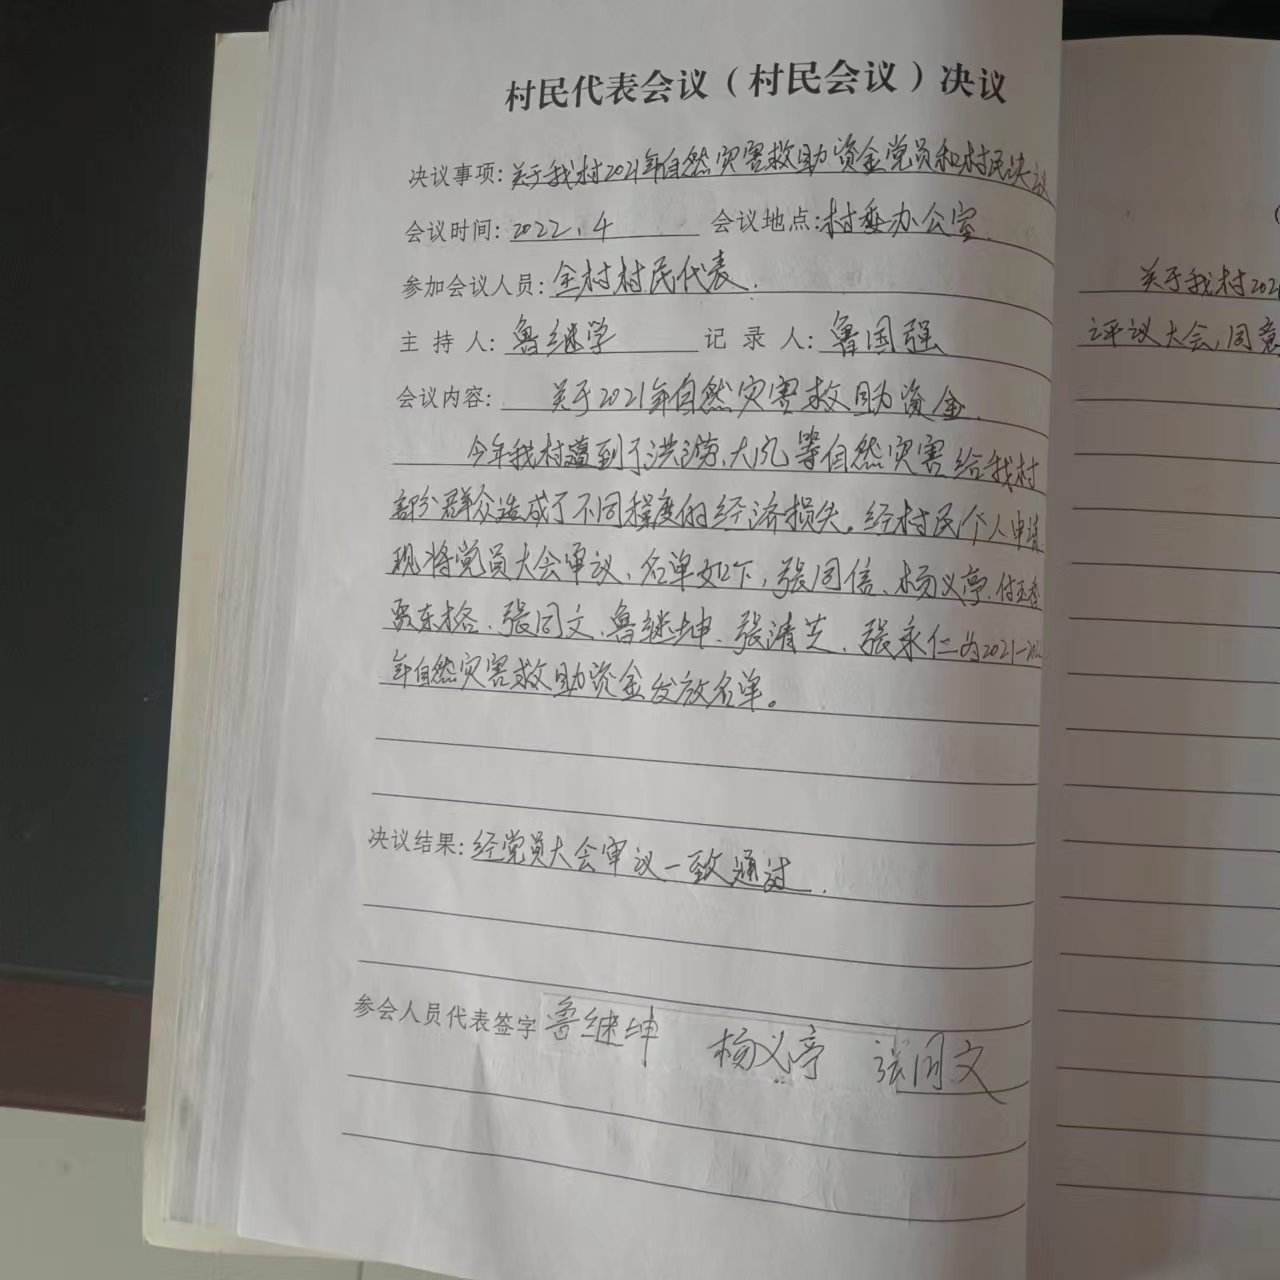 村民代表会议（村民会议）决议
决议事项: 关于我村2021年自然灾害救助资金党员和村民决议
会议时间: 2022.4 会议地点: 村委办公室.
参加会议人员: 全村村民代表.
主持人: 鲁继学 记录人: 鲁国强
会议内容: 关于2021年自然灾害救助资金.
今年我村遭到了洪涝、大风等自然灾害给我村
部分群众造成了不同程度的经济损失。经村民个人申请
现将党员大会审议、名单如下, 张同信、杨义亭、付玉香
贾东格、张同文、鲁继坤、张清芝、张永仁为2021-2022
年自然灾害救助资金发放名单。
决议结果: 经党员大会审议一致通过.
参会人员代表签字 鲁继坤 杨义亭 张同文
关于我村202
评议大会, 同意